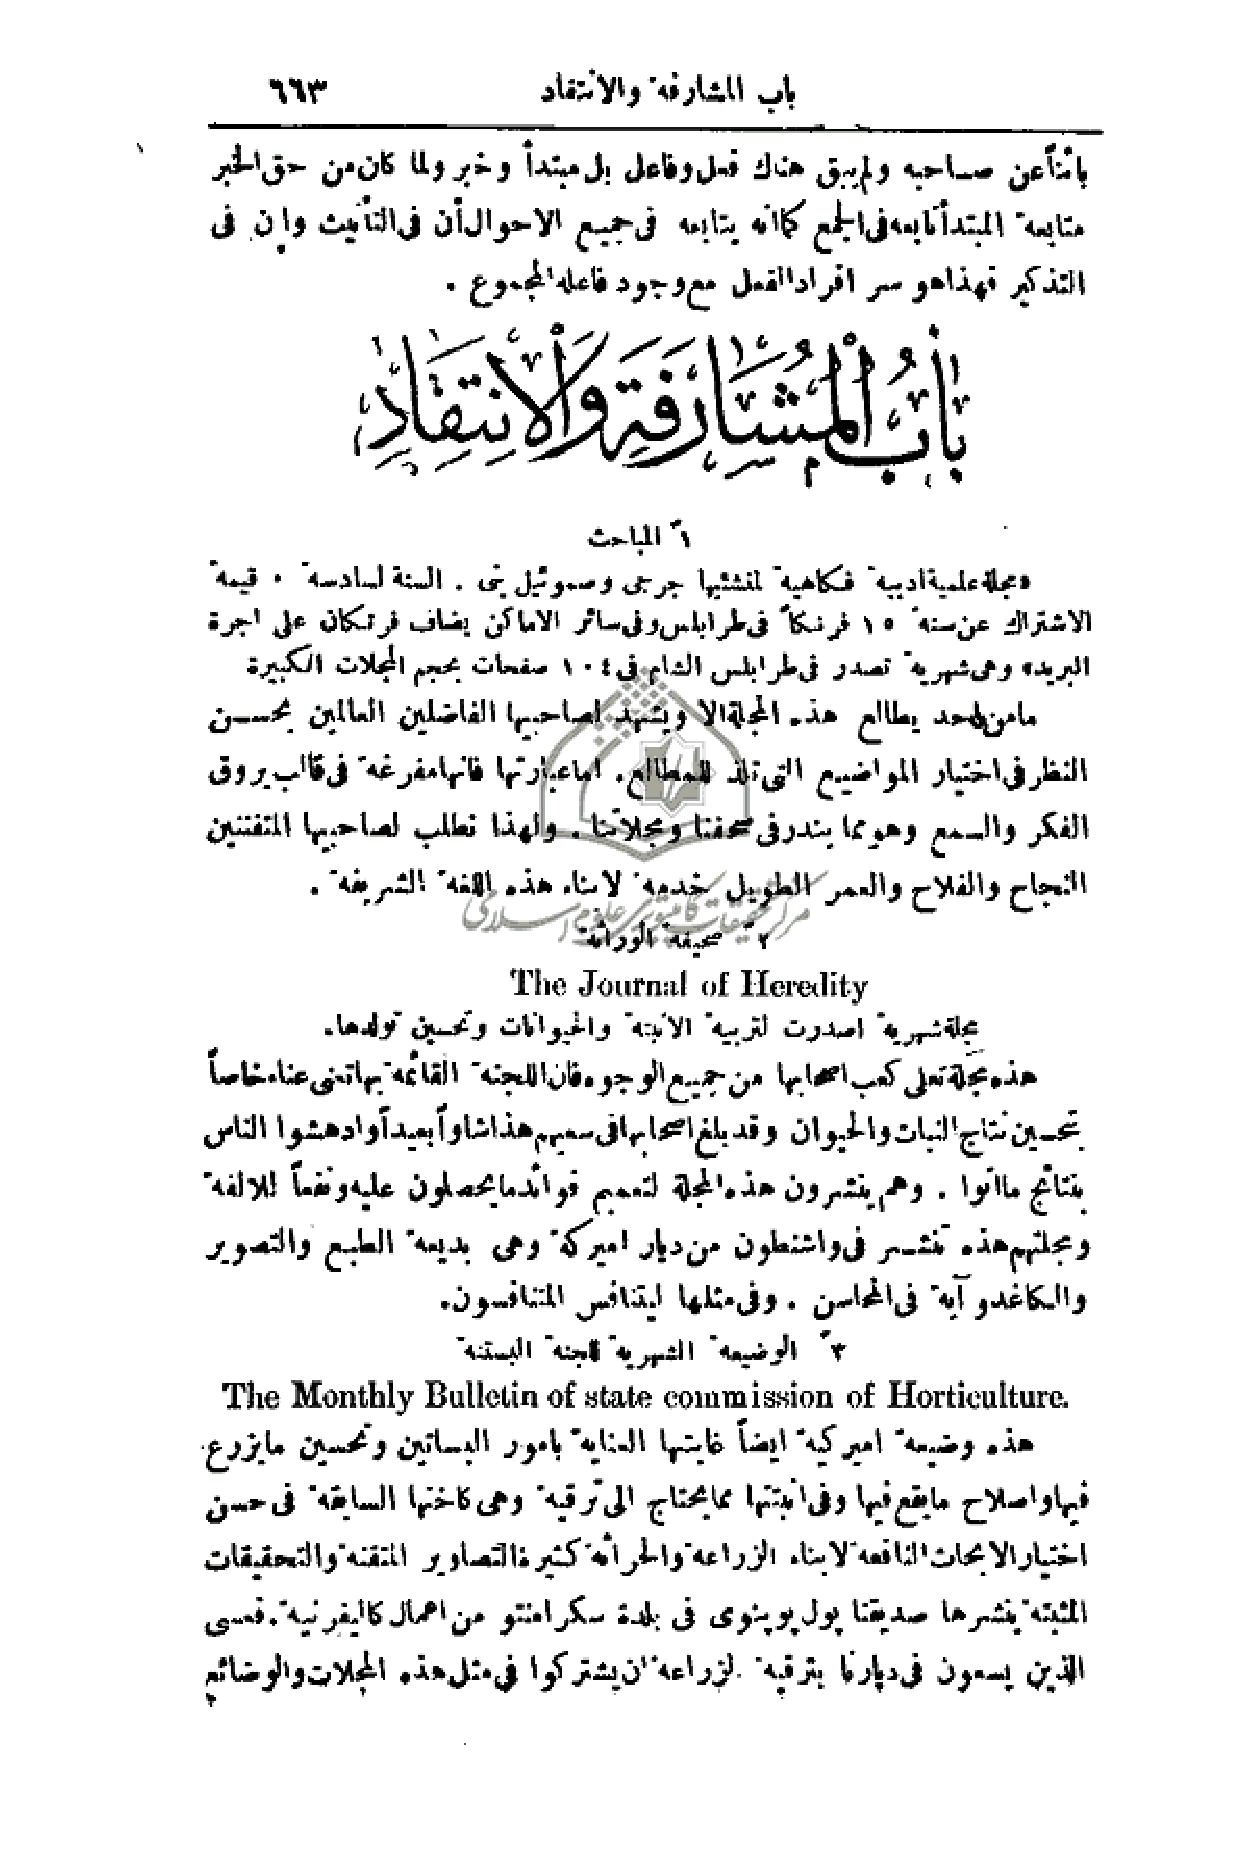 باب المشارفة والانتقاد ٦٦٣
بائناً عن صاحبه ولم يبق هناك فعل وفاعل بل مبتدأ وخبر ولما كان من حق الخبر
متابعة المبتدأ تابعه في الجمع كما انه يتابعه في جميع الاحوال أن في التأنيث وإن في
التذكير فهذا هو سر افراد الفعل مع وجود فاعله المجموع .
بَابُ الْمُشَارَفَةِ وَالْاِنْتِقَادِ
١ً المباحث
«مجلة علمية ادبية فكاهية لمنشئيها جرجي وصموئيل يني . السنة لسادسة . قيمة
الاشتراك عن سنة ١٥ فرنكاً في طرابلس وفي سائر الاماكن يضاف فرنكان على اجرة
البريد» وهي شهرية تصدر في طرابلس الشام في ١٠٤ صفحات بحجم المجلات الكبيرة
ما من احد يطالع هذه المجلة الا ويشهد لصاحبيها الفاضلين العالمين بحسن
النظر في اختيار المواضيع التي تلذ للمطالع . اما عبارتها فانها مفرغة في قالب يروق
الفكر والسمع وهو مما يندر في صحفنا ومجلاتنا . ولهذا نطلب لصاحبيها المتفننين
النجاح والفلاح والعمر الطويل خدمة لابناء هذه اللغة الشريفة .
مركز تحقيقات كامپيوتري علوم اسلامي
٢ً صحيفة الوراثة
The Journal of Heredity
مجلة شهرية اصدرت لتربية الانبتة والحيوانات وتحسين تولدها.
هذه مجلة تعلي كعب اصحابها من جميع الوجوه فان اللجنة القائمة بها تعنى عناء خاصاً
بتحسين نتاج النبات والحيوان وقد بلغ اصحابها في سعيهم هذا شاواً بعيداً وادهشوا الناس
بنتائج ما اتوا . وهم ينشرون هذه المجلة لتعميم فوائد ما يحصلون عليه ونفعاً للالفة
ومجلتهم هذه تنشر في واشنطون من ديار اميركة وهي بديعة الطبع والتصوير
والكاغد و آية في المحاسن . وفي مثلها ليتنافس المتنافسون.
٣ً الوضيعة الشهرية للجنة البستنة
The Monthly Bulletin of state commission of Horticulture.
هذه وضيعة اميركية ايضاً غايتها العناية بامور البساتين وتحسين ما يزرع
فيها واصلاح ما يقع فيها وفي انبتتها مما يحتاج الى ترقية وهي كاختها السابقة في حسن
اختيار الابحاث النافعة لابناء الزراعة والحراثة كثيرة التصاوير المتقنة والتحقيقات
المثبتة ينشرها صديقنا پول پوپنوي في بلدة سكرامنتو من اعمال كاليفرنية . فعسى
الذين يسعون في ديارنا بترقية لزراعة ان يشتركوا في مثل هذه المجلات والوضائع